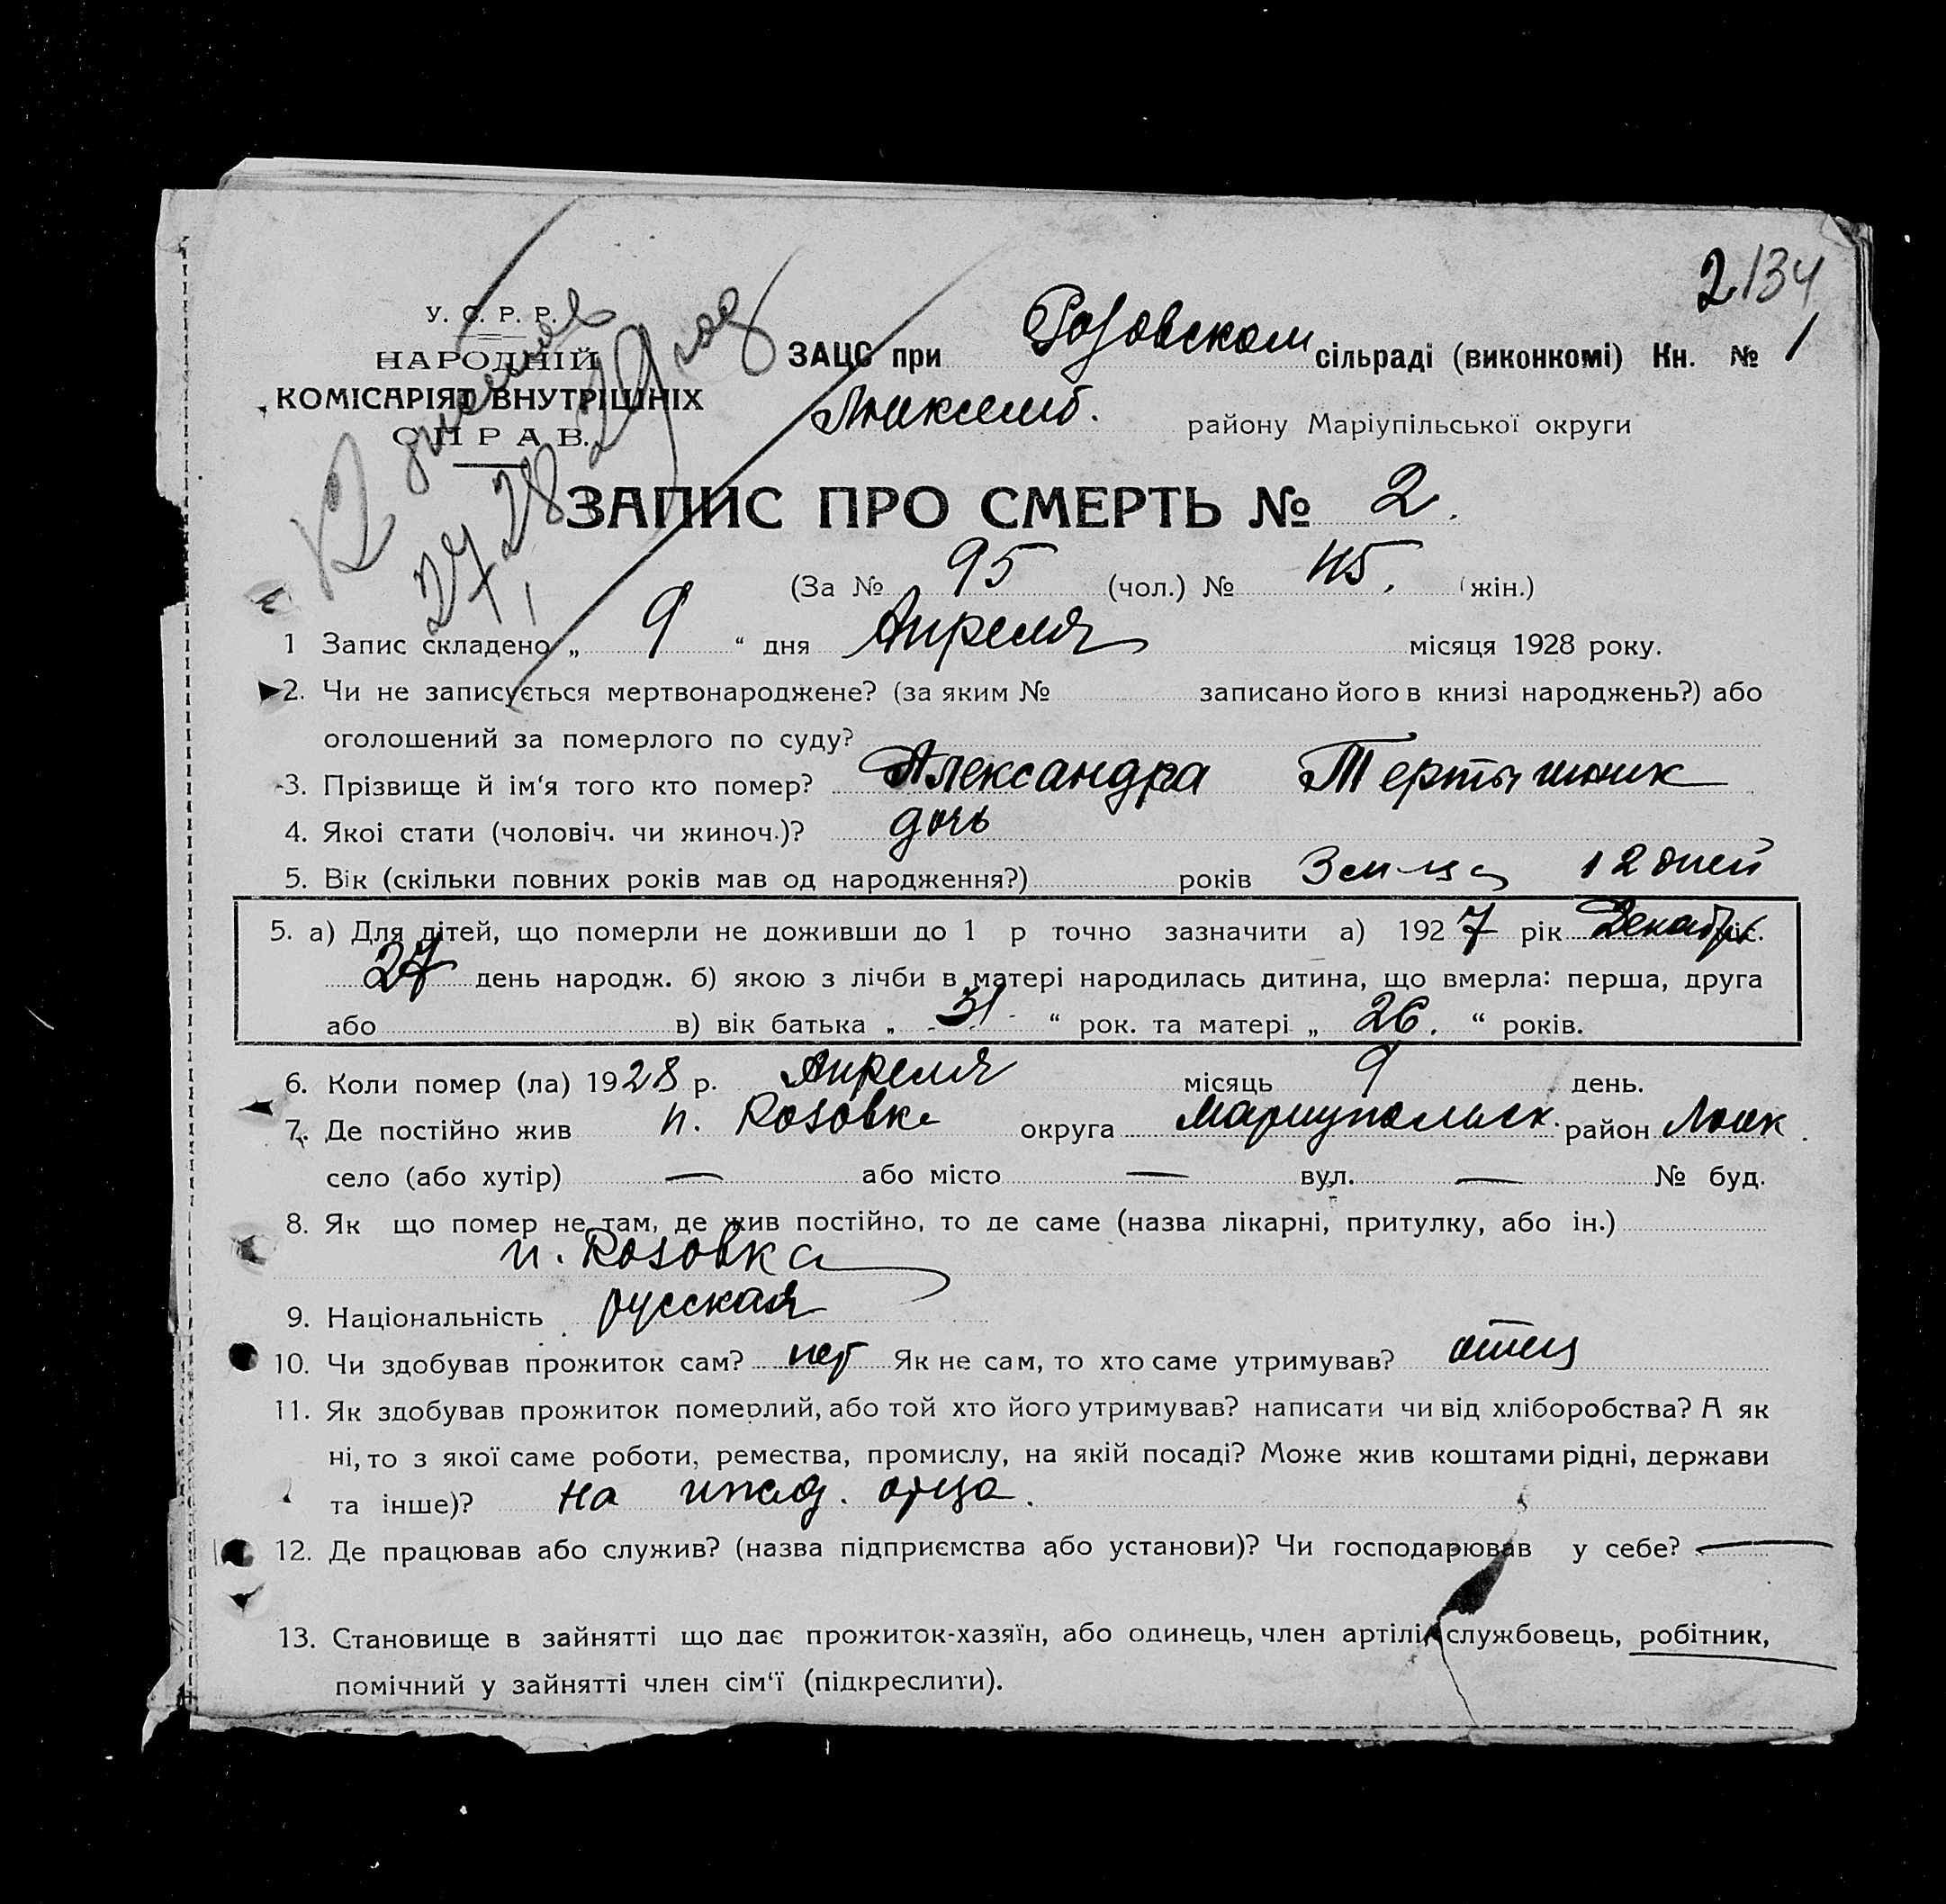 2 134
У. С. Р. Р.
НАРОДНІЙ
КОМІСАРІЯТ ВНУТРІШНІХ
СПРАВ.
27, 28, 29 год
ЗАЦС при Розовском сільраді (виконкомі) Кн. № 1
Люксемб. району Маріупільської округи
ЗАПИС ПРО СМЕРТЬ № 2.
(За № 95 (чол.) № 45. (жін.)
1 Запис складено „ 9 “ дня Апреля місяця 1928 року.
2. Чи не записується мертвонароджене? (за яким № записано його в книзі народжень?) або
оголошений за померлого по суду?
3. Прізвище й ім‘я того кто помер? Александра Тертышник
4. Якоі стати (чоловіч. чи жиноч.)? дочь
5. Вік (скільки повних років мав од народження?) років 3 м-ца 12 дней
5. а) Для дітей, що померли не доживши до 1 р точно зазначити а) 1927 рік Декабрь міс.
27 день народж. б) якою з лічби в матері народилась дитина, що вмерла: перша, друга
або в) вік батька „ 31 “ рок. та матері „ 26. “ років.
6. Коли помер (ла) 1928 р. Апреля місяць 9 день.
7. Де постійно жив п. Rosовка округа Мариупольск. район Люк
село (або хутір) — або місто — вул. — № буд.
8. Як що помер не там, де жив постійно, то де саме (назва лікарні, притулку, або ін.)
п. Rosовка
9. Національність русская
10. Чи здобував прожиток сам? нет Як не сам, то хто саме утримував? отец
11. Як здобував прожиток померлий, або той хто його утримував? написати чи від хліборобства? А як
ні, то з якої саме роботи, ремества, промислу, на якій посаді? Може жив коштами рідні, держави
та інше)? на ижд. отца.
12. Де працював або служив? (назва підприємства або установи)? Чи господарював у себе? —
13. Становище в зайнятті що дає прожиток-хазяїн, або одинець, член артілі, службовець, робітник,
помічний у зайнятті член сім‘ї (підкреслити).